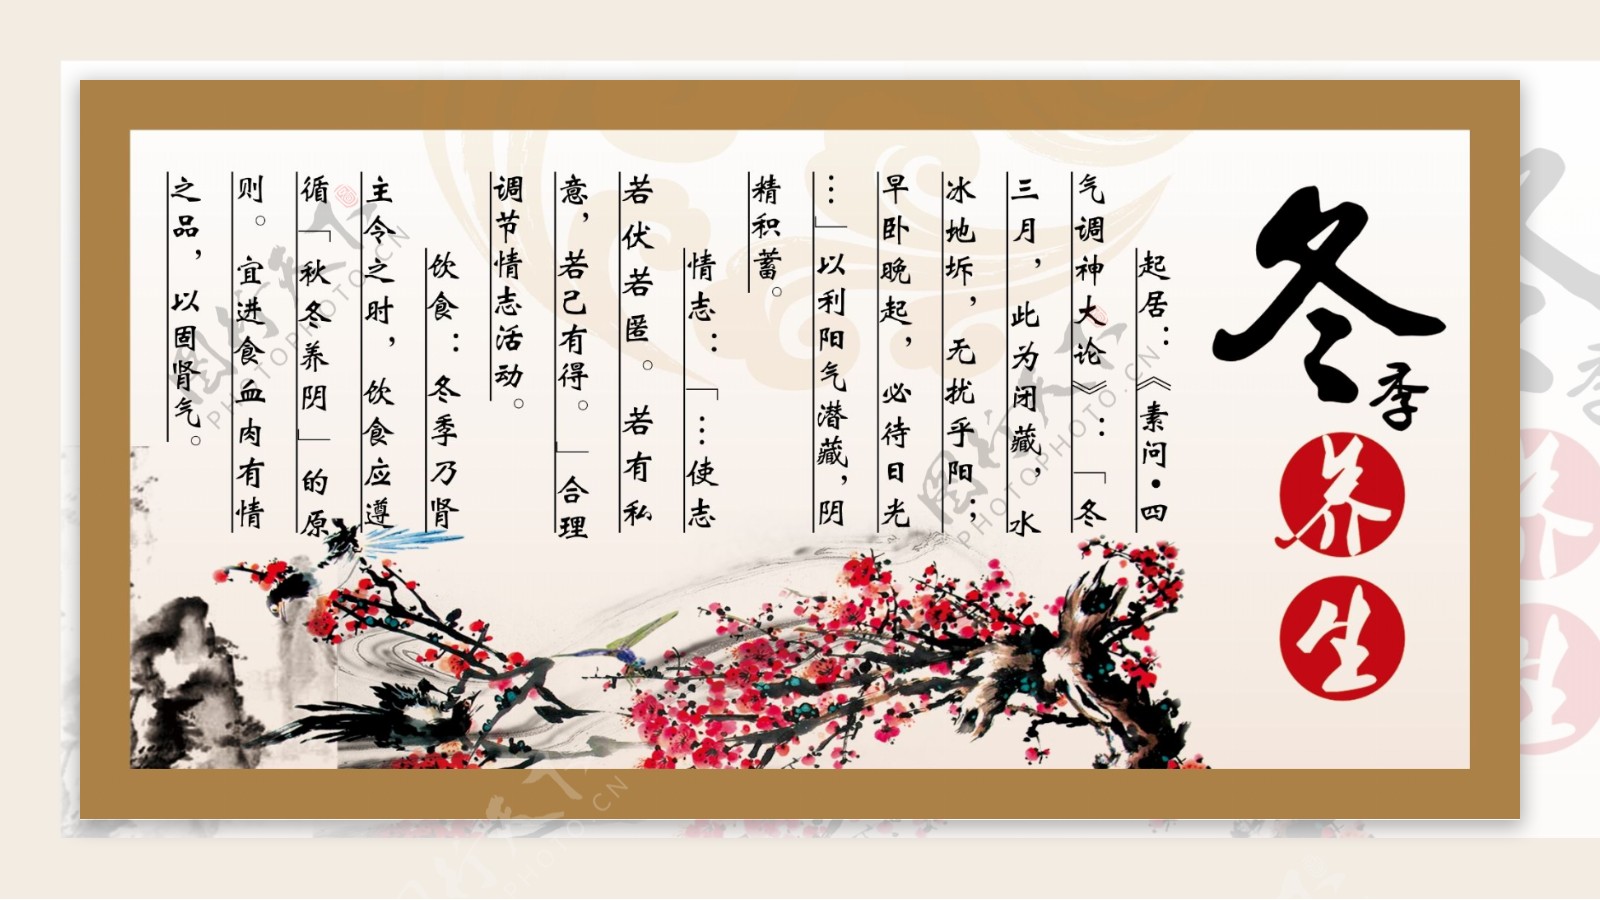 冬季
养
生
起居：《素问•四
气调神大论》：「冬
三月，此为闭藏，水
冰地坼，无扰乎阳；
早卧晚起，必待日光
…」以利阳气潜藏，阴
精积蓄。
情志：「…使志
若伏若匿。若有私
意，若己有得。」合理
调节情志活动。
饮食：冬季乃肾
主令之时，饮食应遵
循「秋冬养阴」的原
则。宜进食血肉有情
之品，以固肾气。
图行天下
PHOTOPHOTO.CN
图行天下
PHOTOPHOTO.CN